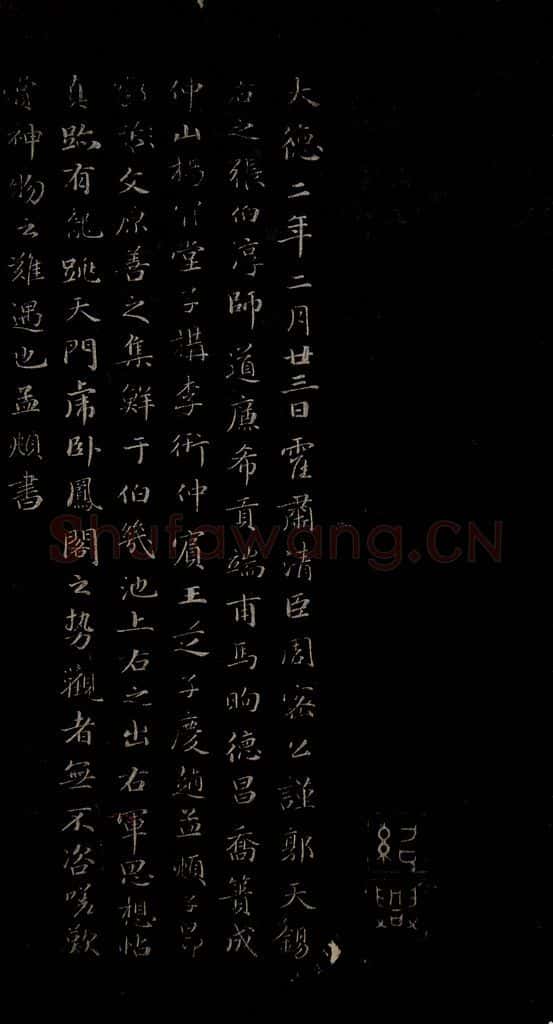 大德二年二月廿三日霍肅清臣周密公謹郭天錫
右之張伯淳師道廉希貢端甫馬昫德昌喬簣成
仲山楊肯堂子構李衎仲賓王芝子慶趙孟頫子昂
鄧文原善之集鮮于伯幾池上右之出右軍思想帖
真跡有龍跳天門虎卧鳳閣之勢觀者無不咨嗟歎
賞神物之難遇也孟頫書
Shufawang.CN